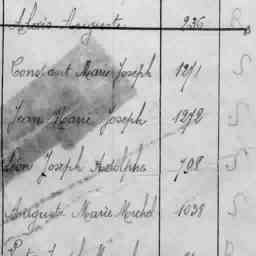 Alois Auguste 236
Constant Marie Joseph 1271
Jean Marie Joseph 1272 S
Léon Joseph Adolphe 708 S
Auguste Marie Michel 1038 S
Joseph